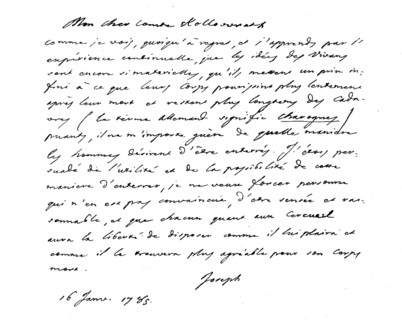 Mon cher Comte Kollowrath
comme je vois, quoiqu'à regret, et j'apprends par l'
expérience continuelle, que les idées des vivans
sont encore si materielles, qu'ils mettent un prix in-
fini à ce que leurs Corps pourrissent plus lentement
après leur mort et restent plus longtems des Cada-
vres (le terme allemand signifie charognes)
puants, il ne m'importe guère de quelle maniere
les hommes désirent d'être enterrés. J'étois per-
suadé de l'utilité et de la possibilité de cette
maniere d'enterrer, je ne veux forcer personne
qui n'en est pas convaincu, d'être sensée et rai-
sonnable, et que chacun quant aux Cercueil
aura la liberté de disposer comme il lui plaira et
comme il le trouvera plus agréable pour son Corps
mort.
Joseph
16 Janv. 1785.